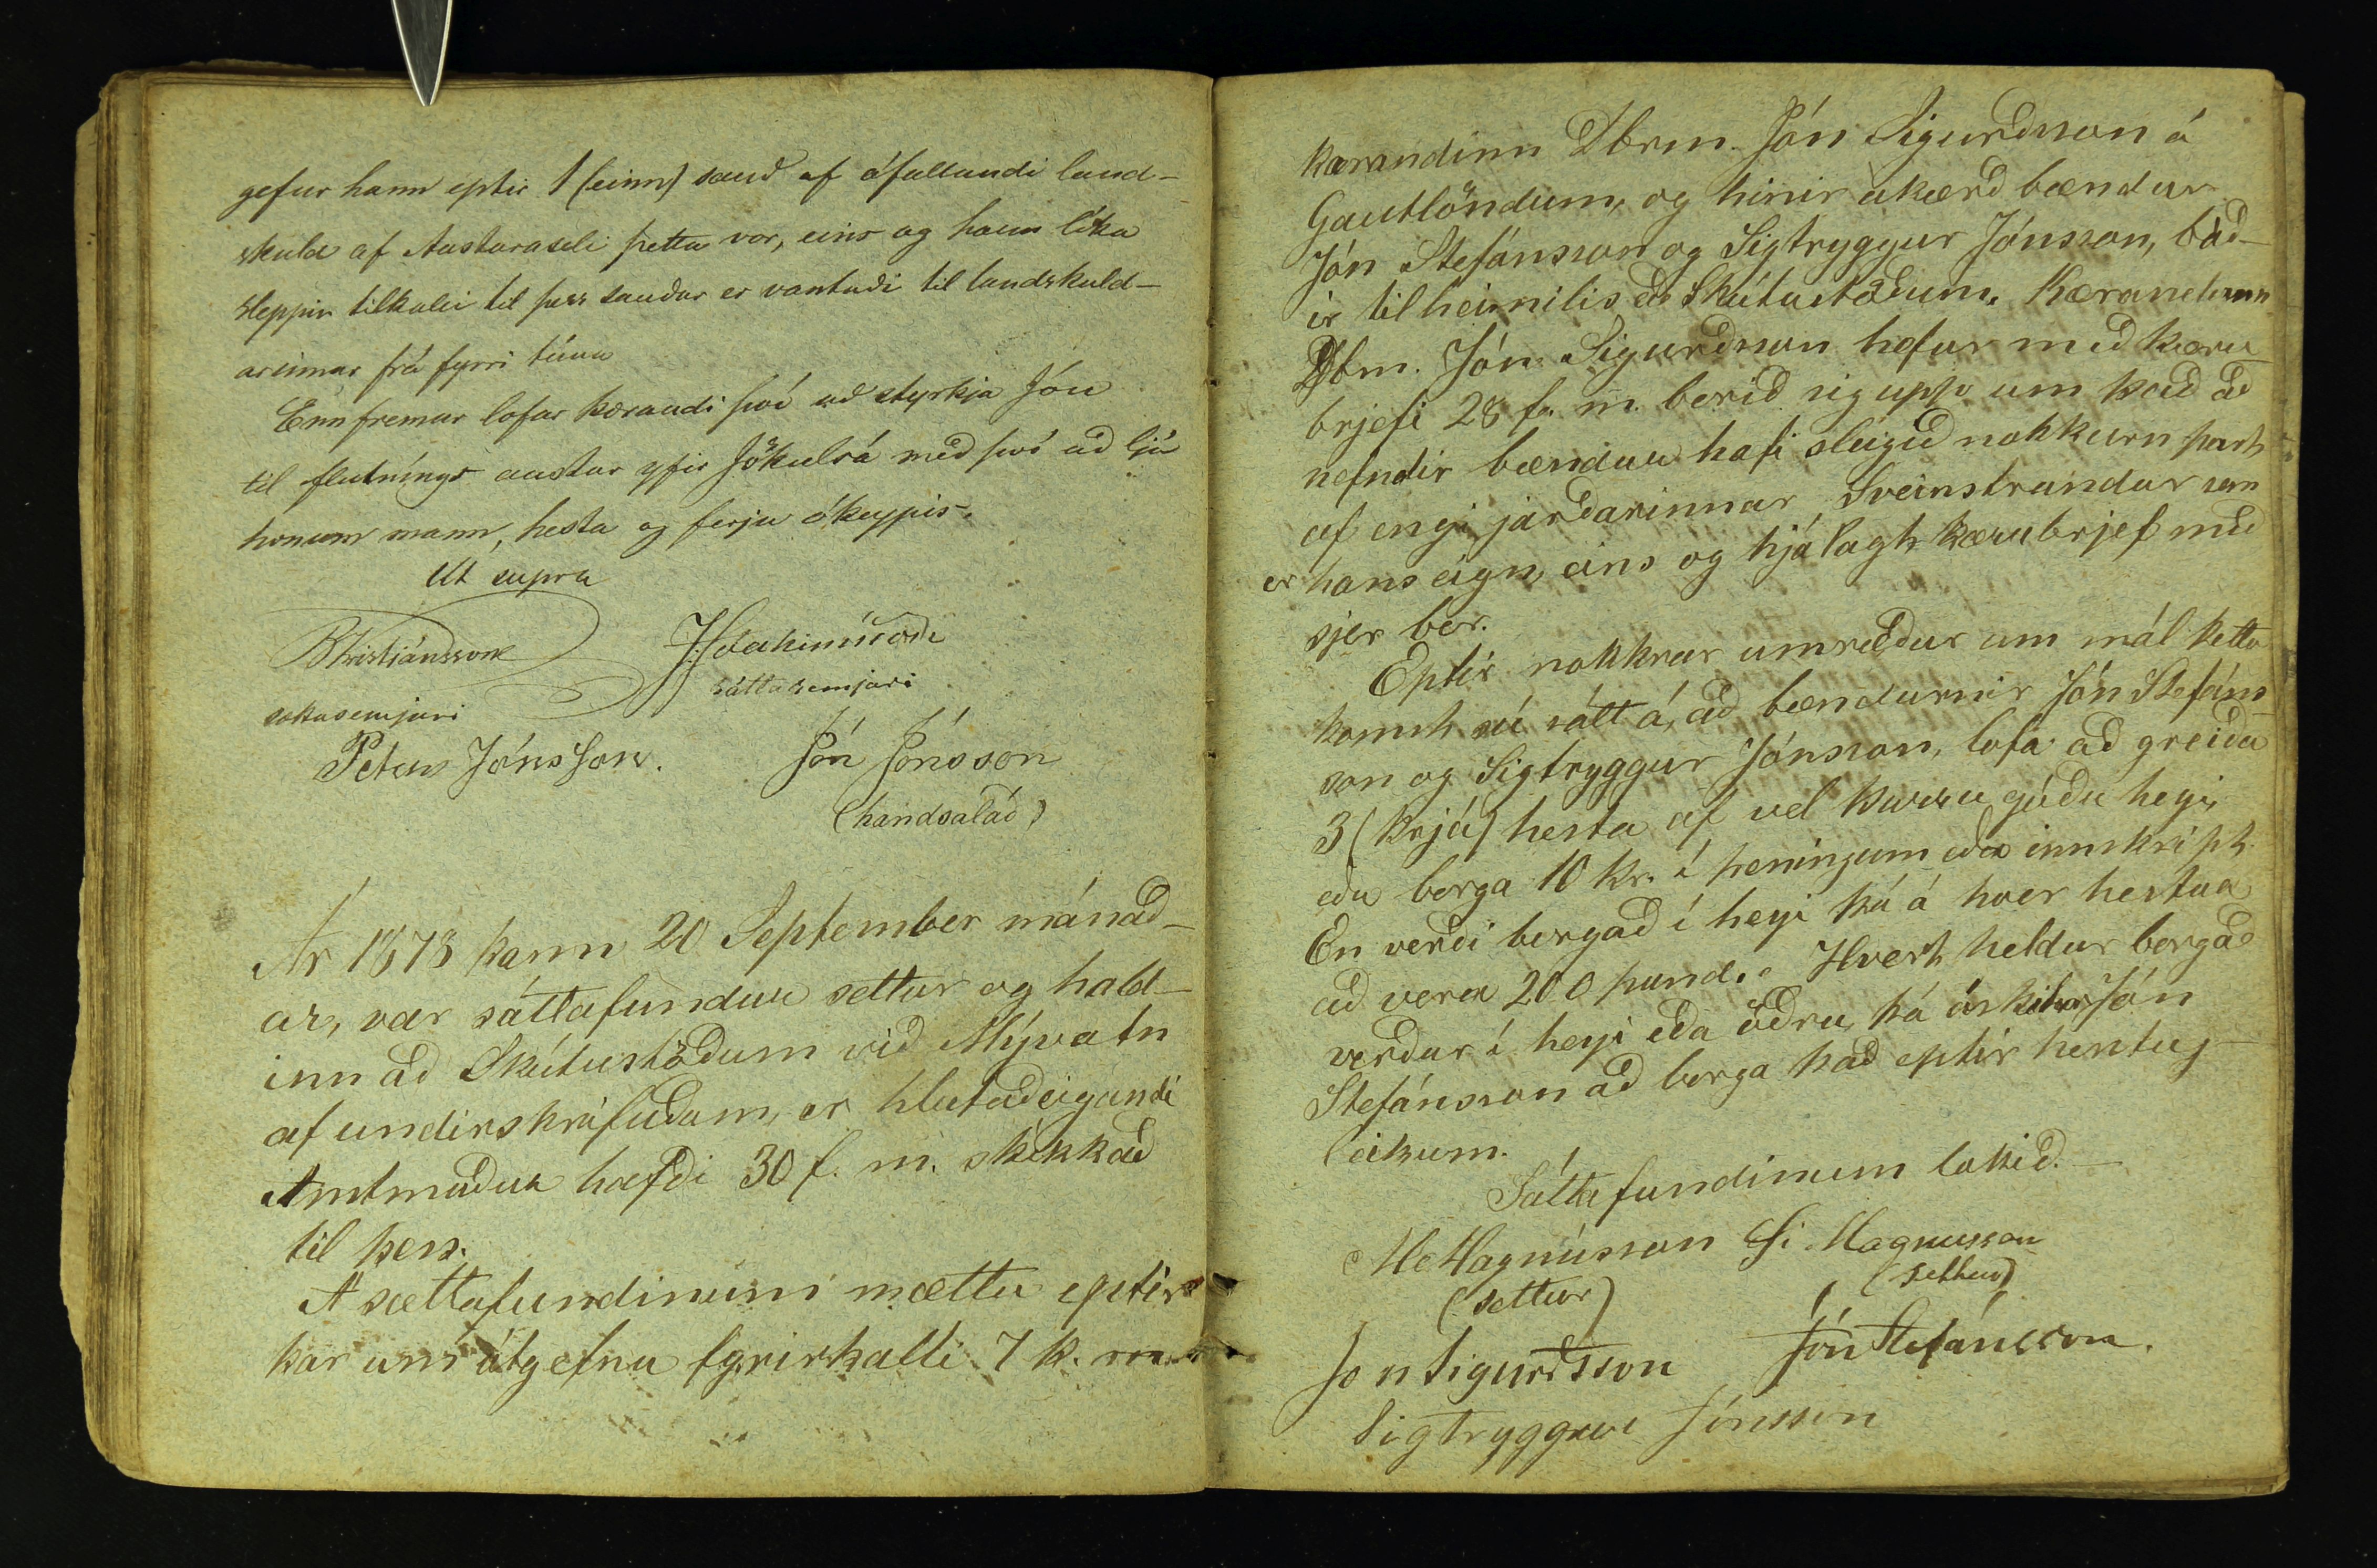 gefur hann eptir 1 (einn) sauð af áfallandi land-
skuld af Austaraseli þetta vor, eins og hann líka
sleppir tilkalli til þess sauðar er vantaði til landskuld-
arinnar frá fyrri tíma
Enn fremur lofar kærandi því að styrkja Jón
til flutníngs austur yfir Jökulsá með því að ljá
honum mann, hesta og ferju ókeypis.
Ut supra
BKristiánsson
sáttasemjari
sáttasemjari
Petur Jónsson. Jón Jónsson
(handsalað)
Ár 1878 þann 20 September mánað-
ar, var sáttafundur settur og hald-
inn að Skútustöðum við Mývatn
af undirskrifuðum, er hlutaðeigandi
Amtmaður hafði 30 f. m. skikkað
til þess.
Á sættafundinum mættu eptir
þar um útgefnu fyrirkalli 7 þ. m.
kærandinn Dbrm. Jón Sigurðsson á
Gautlöndum, og hinir ákærð bændur
Jón Stefánsson og Sigtryggur Jónsson, báð-
ir til heimilis að Skútustöðum. Kærandinn
Dbm. Jón Sigurðsson hefur með kæru-
brjefi 28 f. m. borið sig upp um það að
nefndir bændur hafi slegið nokkurn part
af engi jarðarinnar Sveinstrandar sem
er hans eign, eins og hjálagt kærubrjef með
sjer ber.
Eptir nokkrar umræður um mál þetta
komst sú sátt á, að bændurnir Jón Stefáns-
son og Sigtryggur Jónsson, lofa að greiða
3 (þrjá) hesta af vel þurru góðu heyi,
eða borga 10 kr. í peníngum eða innskript.
En verði borgað í heyi þá á hver hestur
að vera 200 pund. Hvert heldur borgað
verður í heyi eða öðru, þá áskilur Jón
Stefánsson að borga það eptir hentug-
leikum.
Sáttafundinum lokið.
M Magnússon Si. Magnusson
(settur) (settur)
Jon Sigurðsson Jón Stefánsson.
Sigtryggur Jónsson